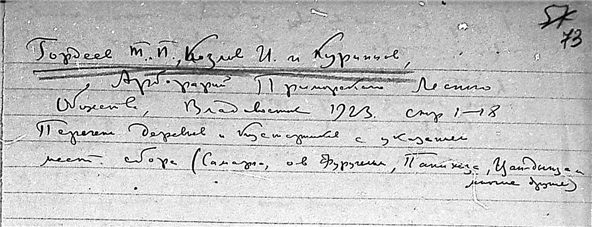 57
73
Гордеев Т.П, Козлов И. и Куринов,
Арборарий Приморского Лесного
Общества, Владивосток 1923. стр 1–18
Перечень деревьев и кустарников с указанием
мест сбора (Самарга, о-в Фуругельм,
многие другие)